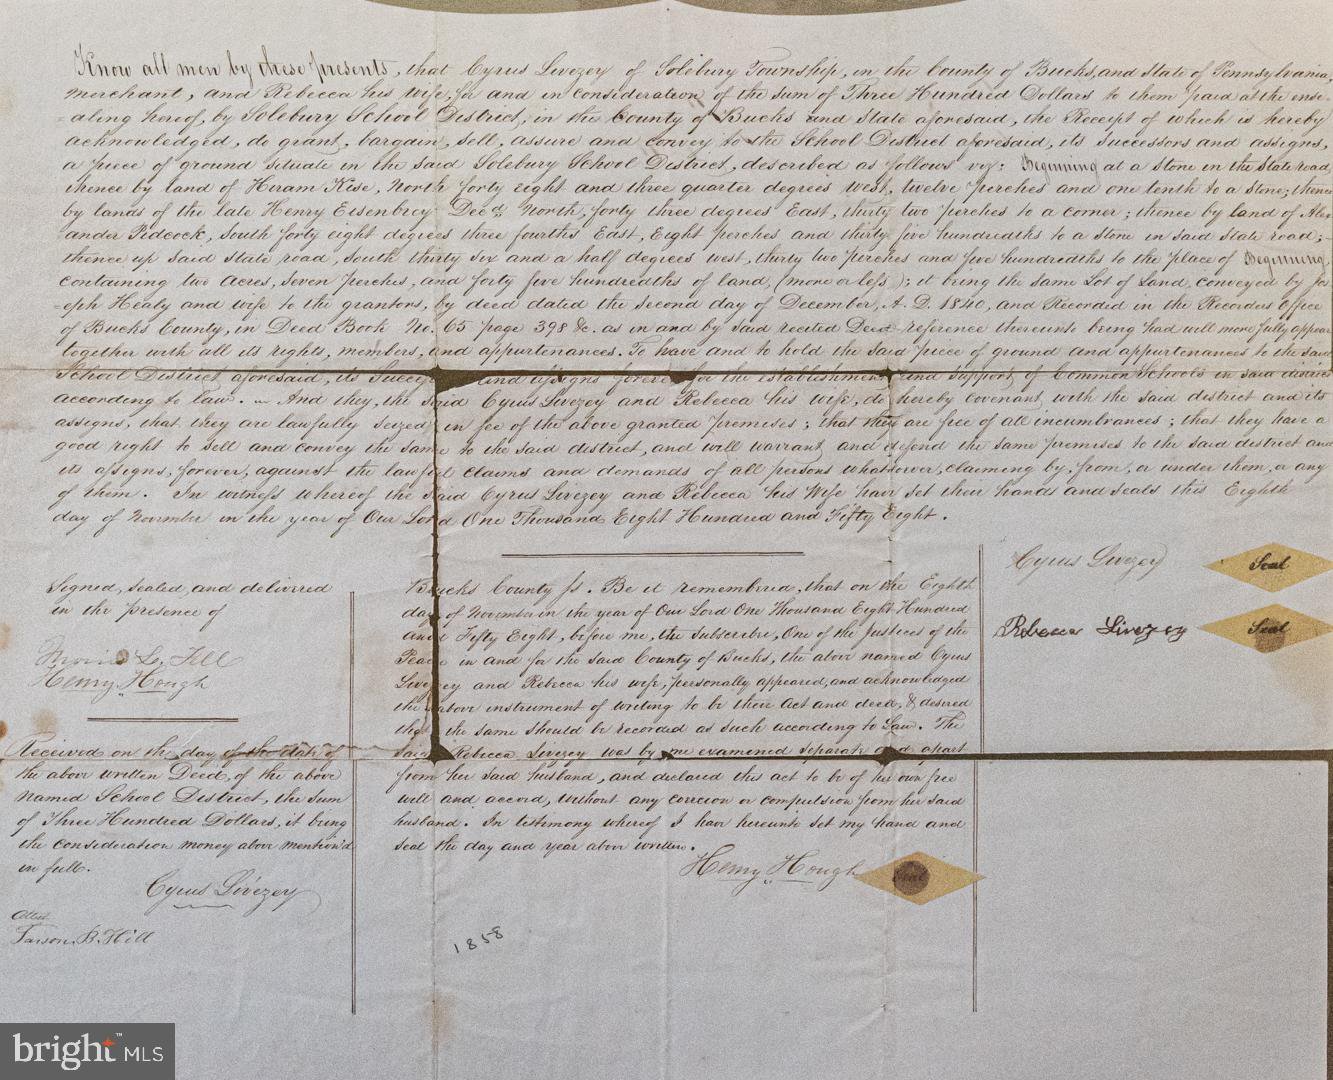 Know all men by these presents, that Cyrus Livezey of Solebury Township, in the County of Bucks, and State of Pennsylvania,
merchant, and Rebecca his wife, for and in consideration of the sum of Three Hundred Dollars to them paid at the ense-
=aling hereof, by Solebury School District, in the County of Bucks and State aforesaid, the Receipt of which is hereby
acknowledged, do grant, bargain, sell, assure and convey to the School District aforesaid, its successors and assigns,
a piece of ground situate in the said Solebury School District, described as follows viz: Beginning at a stone in the State road,
thence by land of Hiram Kise, North forty eight and three quarter degrees west, twelve perches and one tenth to a stone; thence
by lands of the late Henry Eisenbrey Dec'd North, forty three degrees East, thirty two perches to a corner; thence by land of Alex-
ander Pidcock, South forty eight degrees three fourths East, Eight perches and thirty five hundredths to a stone in said State road;
thence up said State road, South thirty six and a half degrees west, thirty two perches and five hundredths to the place of Beginning,
containing two Acres, seven perches, and forty five hundredths of land, (more or less); it being the same Lot of Land, conveyed by Jos-
=eph Healy and wife to the grantors, by deed dated the second day of December, A. D. 1840, and Recorded in the Recorders Office
of Bucks County, in Deed Book No. 65 page 398 &c. as in and by said recited Deed reference thereunto being had will more fully appear
together with all its rights, members, and appurtenances. To have and to hold the said piece of ground and appurtenances to the said
School District aforesaid, its and assigns forever for the establishment and support of Common Schools in said district
according to law. And they, the said Cyrus Livezey and Rebecca his wife, do hereby covenant, with the said district and its
assigns, that, they are lawfully seized in fee of the above granted premises; that they are free of all incumbrances; that they have a
good right to sell and convey the same to the said district, and will warrant and defend the same premises to the said district and
its assigns, forever, against the lawful claims and demands of all persons whatsoever, claiming by, from, or under them, or any
of them. In witness whereof the said Cyrus Livezey and Rebecca his Wife have set their hands and seals this Eighth
day of November in the year of Our Lord One Thousand Eight Hundred and Fifty Eight.
Cyrus Livezey Seal
Rebecca Livezey Seal
Signed, sealed, and delivered
in the presence of
Henry Hough
Received on the day of the date of
the above written Deed, of the above
named School District, the sum
of Three Hundred Dollars, it being
the consideration money above mention'd
in full.
Cyrus Livezey
Attest
B. Hill
Bucks County ss. Be it remembered, that on the Eighth
day of November in the year of Our Lord One Thousand Eight Hundred
and Fifty Eight, before me, the subscriber, One of the Justices of the
Peace in and for the said County of Bucks, the above named Cyrus
Livezey and Rebecca his wife, personally appeared, and acknowledged
the above instrument of writing to be their Act and deed, & desired
that the same should be recorded as such according to Law. The
said Rebecca Livezey was by me examened separate and apart
from her said husband, and declared this act to be of her own free
will and accord, without any coercion or compulsion from her said
husband. In testimony whereof I have hereunto set my hand and
seal the day and year above written.
Henry Hough Seal
1858
bright MLS